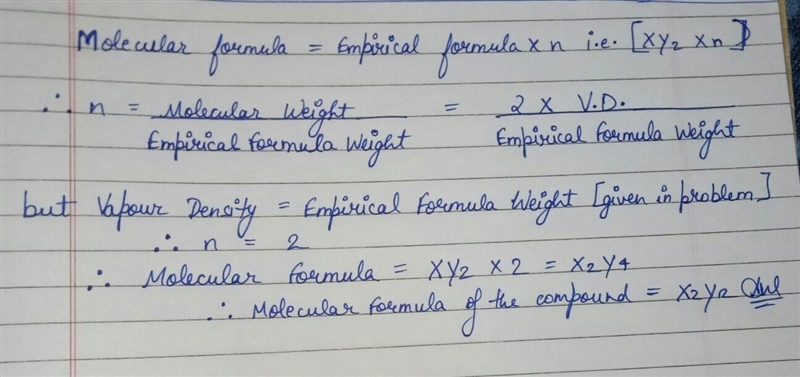 Molecular formula = Empirical formula x n i.e. [XY2 x n]
∴ n = Molecular Weight / Empirical Formula Weight = 2 x V.D. / Empirical Formula Weight
but Vapour Density = Empirical Formula Weight [given in problem]
∴ n = 2
∴ Molecular Formula = XY2 x 2 = X2Y4
∴ Molecular Formula of the compound = X2Y2 Ans